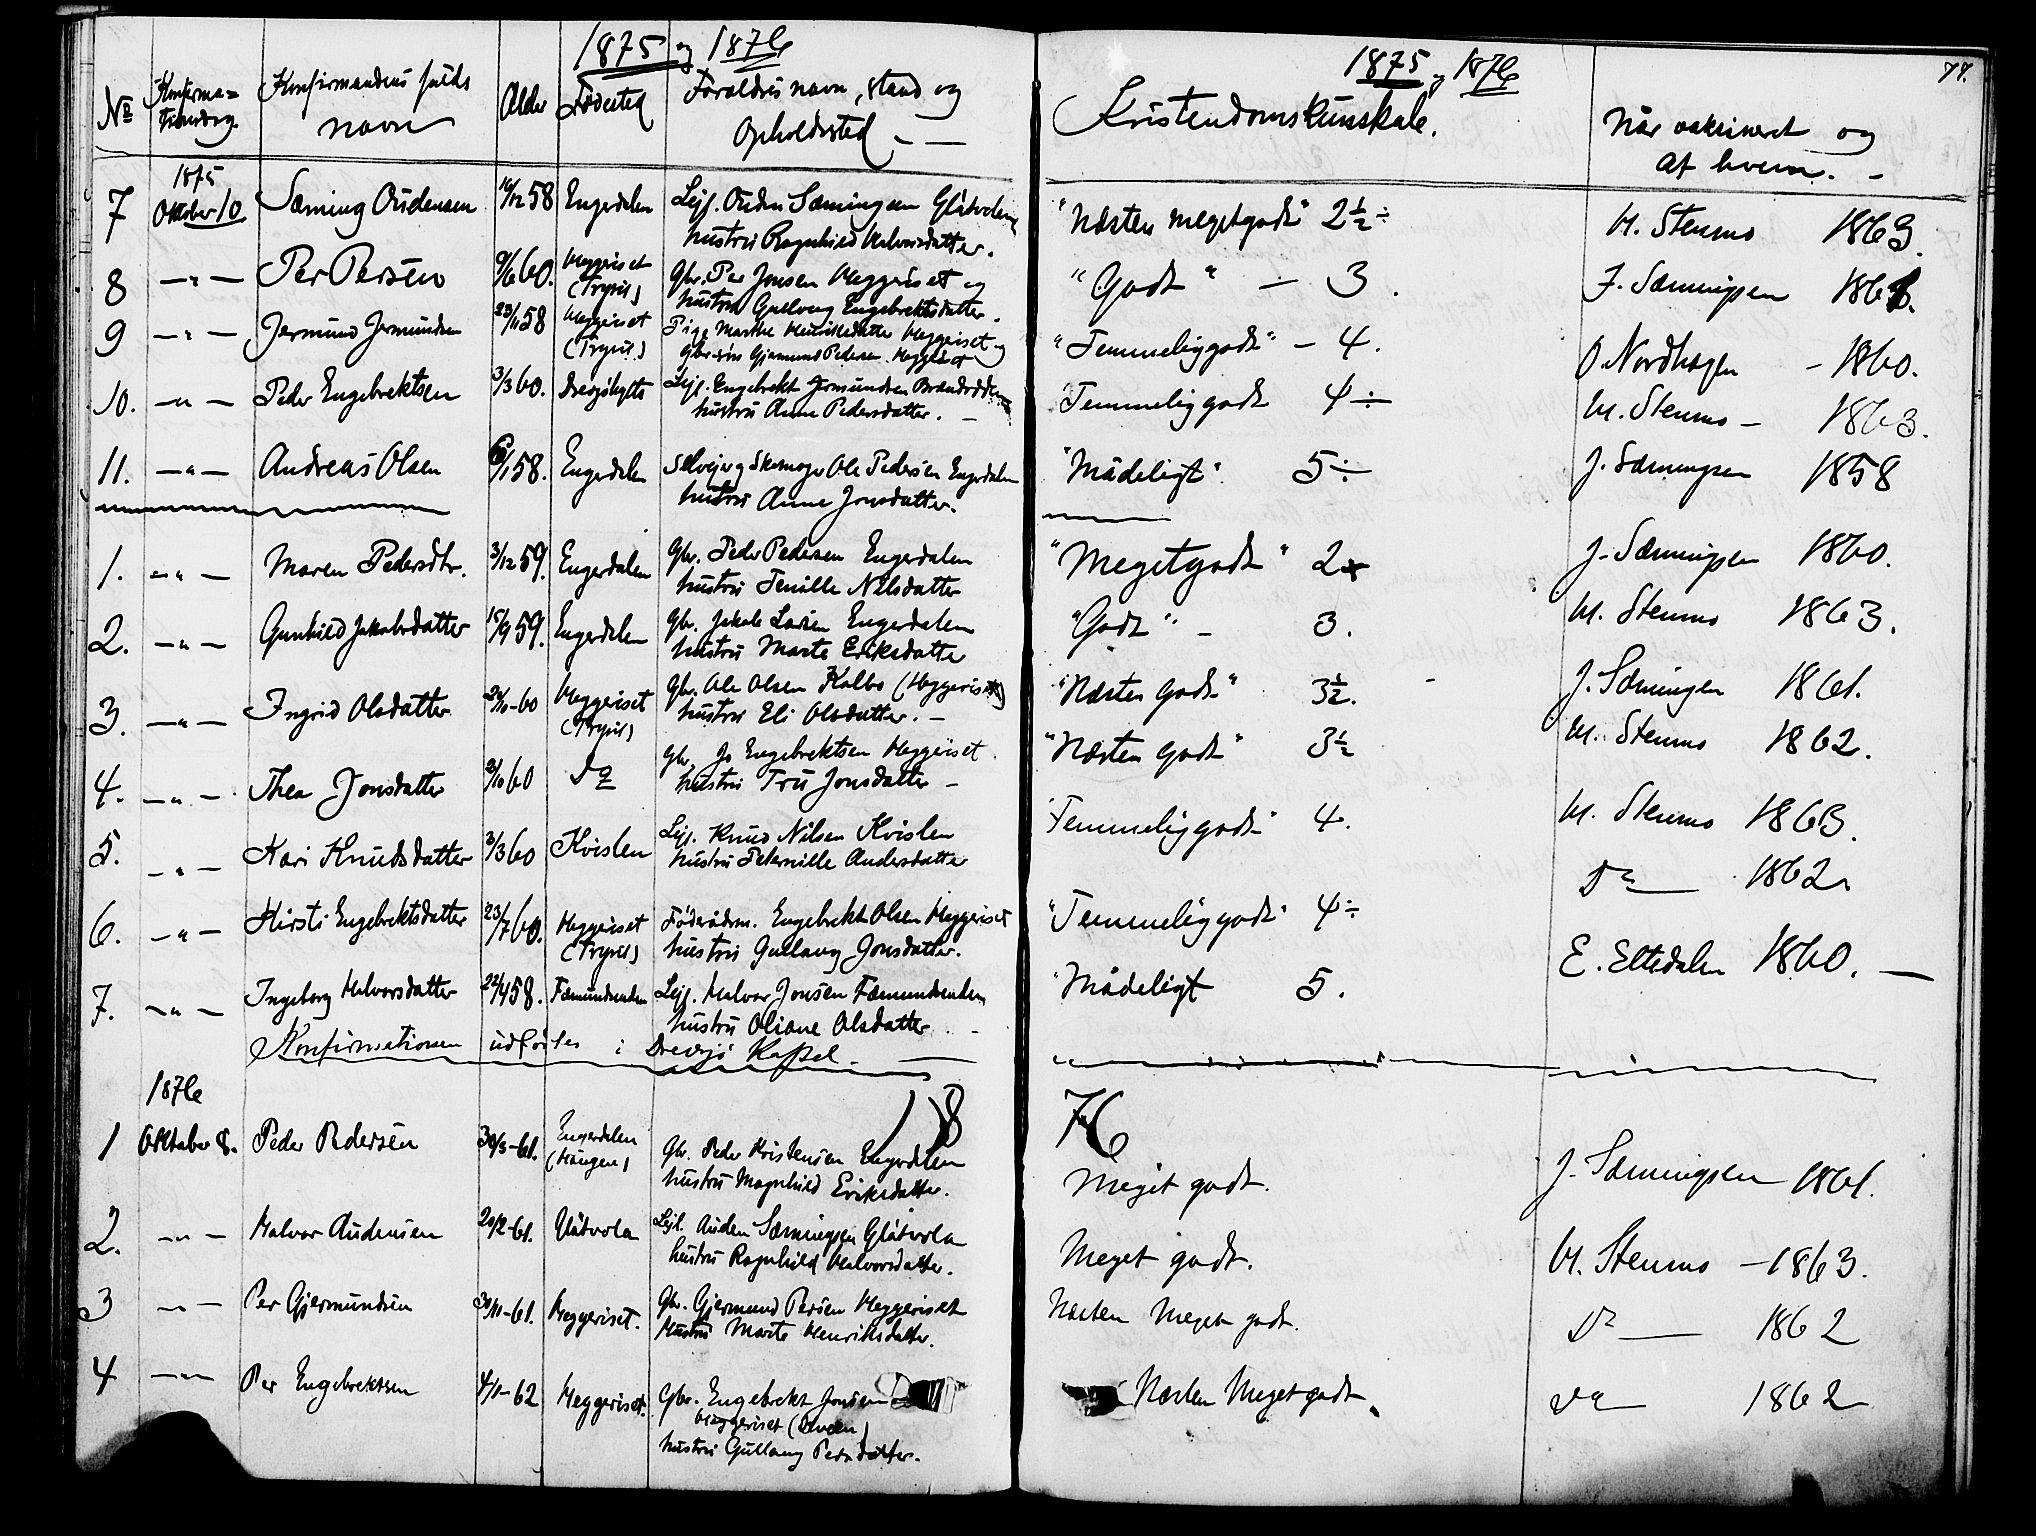 1875 og 1876
1875 og 1876
77.
No
Konfirma=
tionsdag.
Konfirmandens fulde
navn
Alder
Födested
Forældres navn, stand og
Opholdssted
Kristendomskunskab.
Når vaksineret og
af hvem. –
7 1875 Oktober 10. Sæming Oudensen 16/12 58 Engerdalen Lejl. Ouden Sæmingsen Glåtvolen
hustru Ragnhild Halvorsdatter. "Næsten megetgodt" 2½ ÷ H. Stenmo 1863.
8 – " – Per Persen 9/6 60. Heggeriset
(Trysil) Gbr. Per Jonsen Heggeriset og
hustru Gullaug Engebrektsdatter. "Godt" – 3. J. Sæmingsen
9 – " – Jermund Jermundsen 23/11 58 Heggeriset
(Trysil) Pige Marthe Henriksdatter Heggeriset og
Gjermund Pedersen Heggeriset "Temmeliggodt" – 4. O Nordhagen – 1860.
10. – " – Peder Engebrektsen 3/3 60. Lejl. Engebrekt Jermundsen
hustru Anne Pedersdatter. – Temmeliggodt 4 ÷ H. Stenmo – 1863.
11. – " – Andreas Olsen 6/1 58. Engerdalen Selvejer og Skomager Ole Pedersen Engerdalen
hustru Anne Jonsdatter. "Mådeligt". 5 ÷ J. Sæmingsen 1858
1. – " – Maren Pedersdtr. 3/12 59. Engerdalen Gbr. Peder Pedersen Engerdalen
hustru Pernille Nilsdatter "Megetgodt" 2 J. Sæmingsen 1860.
2. – " – Gunhild Jakobsdatter 15/9 59. Engerdalen Gbr. Jakob Larsen Engerdalen
hustru Marte Eriksdatter "Godt" – 3. H. Stenmo 1863.
3. – " – Ingrid Olsdatter Heggeriset
(Trysil) Gbr. Ole Olsen Kalbo (Heggeriset)
hustru Eli Olsdatter. – "Næsten godt" 3½. J. Sæmingsen 1861.
4. – " – Thea Jonsdatter 3/10 60 Do Gbr. Jo Engebrektsen Heggeriset
hustru Tru Jonsdatter – "Næsten godt" 3½ H. Stenmo 1862.
5. – " – Kari Knudsdatter 3/3 60 Kvislen Lejl. Knud Nilsen Kvislen
hustru Peternille Andersdatter Temmeliggodt" 4. H. Stenmo 1863.
6. – " – Kirsti Engebrektsdatter 23/7 60. Heggeriset
(Trysil) Föderådsm. Engebrekt Olsen Heggeriset
hustru Gullaug Jonsdatter. "Temmeliggodt" 4 ÷ Do 1862.
7. – " – Ingeborg Halvorsdatter 22/4 58. Fæmundsenden Lejl. Halvor Jonsen Fæmundsenden
hustru Oliane Olsdatter. – "Mådeligt 5. E. Eltedalen 1860. –
Konfirmationen udförtes i Drevsjö Kapel. –
1876
18 76
1 Oktober 8. Peder Pedersen 30/3–61. Engerdalen
(Haugen) Gbr. Peder Kristensen Engerdalen
hustru Magnhild Eriksdatter. Meget godt. J. Sæmingsen 1861.
2. – " – Halvor Audensen 20/2–61. Glåtvola Lejl. Auden Sæmingsen Glåtvola
hustru Ragnhild Halvorsdatter. Meget godt. H. Stenmo – 1863.
3 – " – Per Gjermundsen 30/11–61. Heggeriset. Gbr. Gjermund Persen Heggeriset
Hustru Marte Henriksdatter. Næsten Meget godt. Do 1862
4 – " – Per Engebrektsen 4/1–62 Heggeriset. Gbr. Engebrekt Jonsen
Heggeriset
hustru Gullaug Pedersdatter. Næsten Meget godt. Do 1862